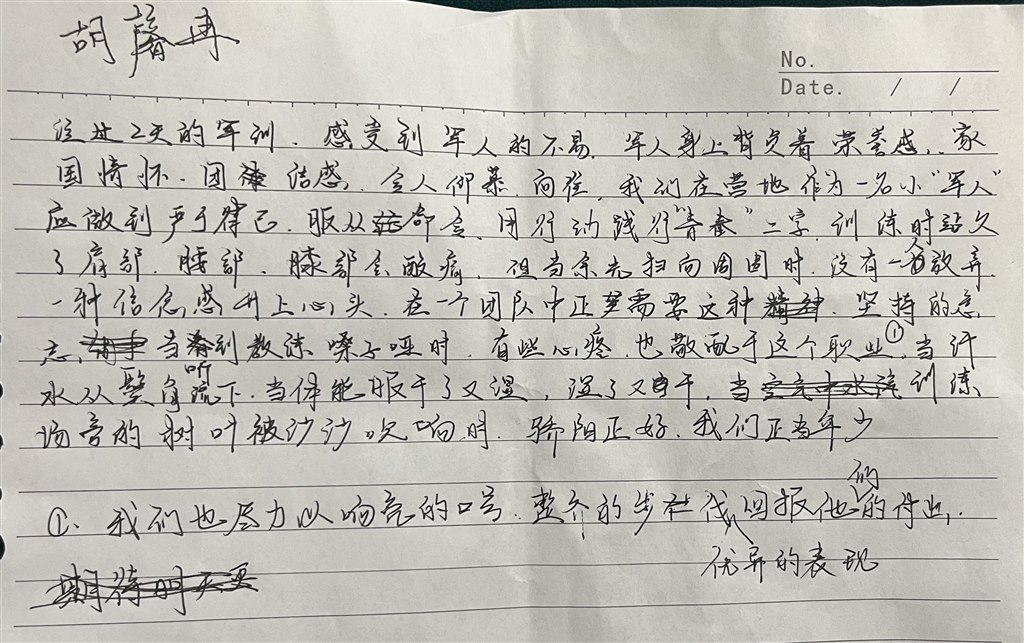 胡馨冉
No.
Date. / /
经过2天的军训、感受到军人的不易、军人身上背负着荣誉感、家
国情怀、团结感、令人仰慕向往、我们在营地作为一名小“军人”
应做到严于律己、服从命令、用行动践行“青春”二字、训练时站久
了肩部、腰部、膝部会酸痛、但当余光扫向周围时、没有一人放弃
一种信念感升上心头、在一个团队中正是需要这种、坚持的意
志、当听到教练嗓子哑时、有些心疼、也敬配于这个职业①当汗
水从鬓角流下、当体能服干了又湿，湿了又干，当训练
场旁的树叶被沙沙吹响时、骄阳正好、我们正当年少
①、我们也尽力以响亮的口号、整齐的步伐优异的表现回报他们的付出、